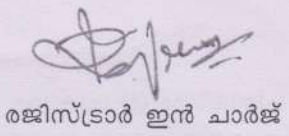 രജിസ്ട്രാർ ഇൻ ചാർജ്